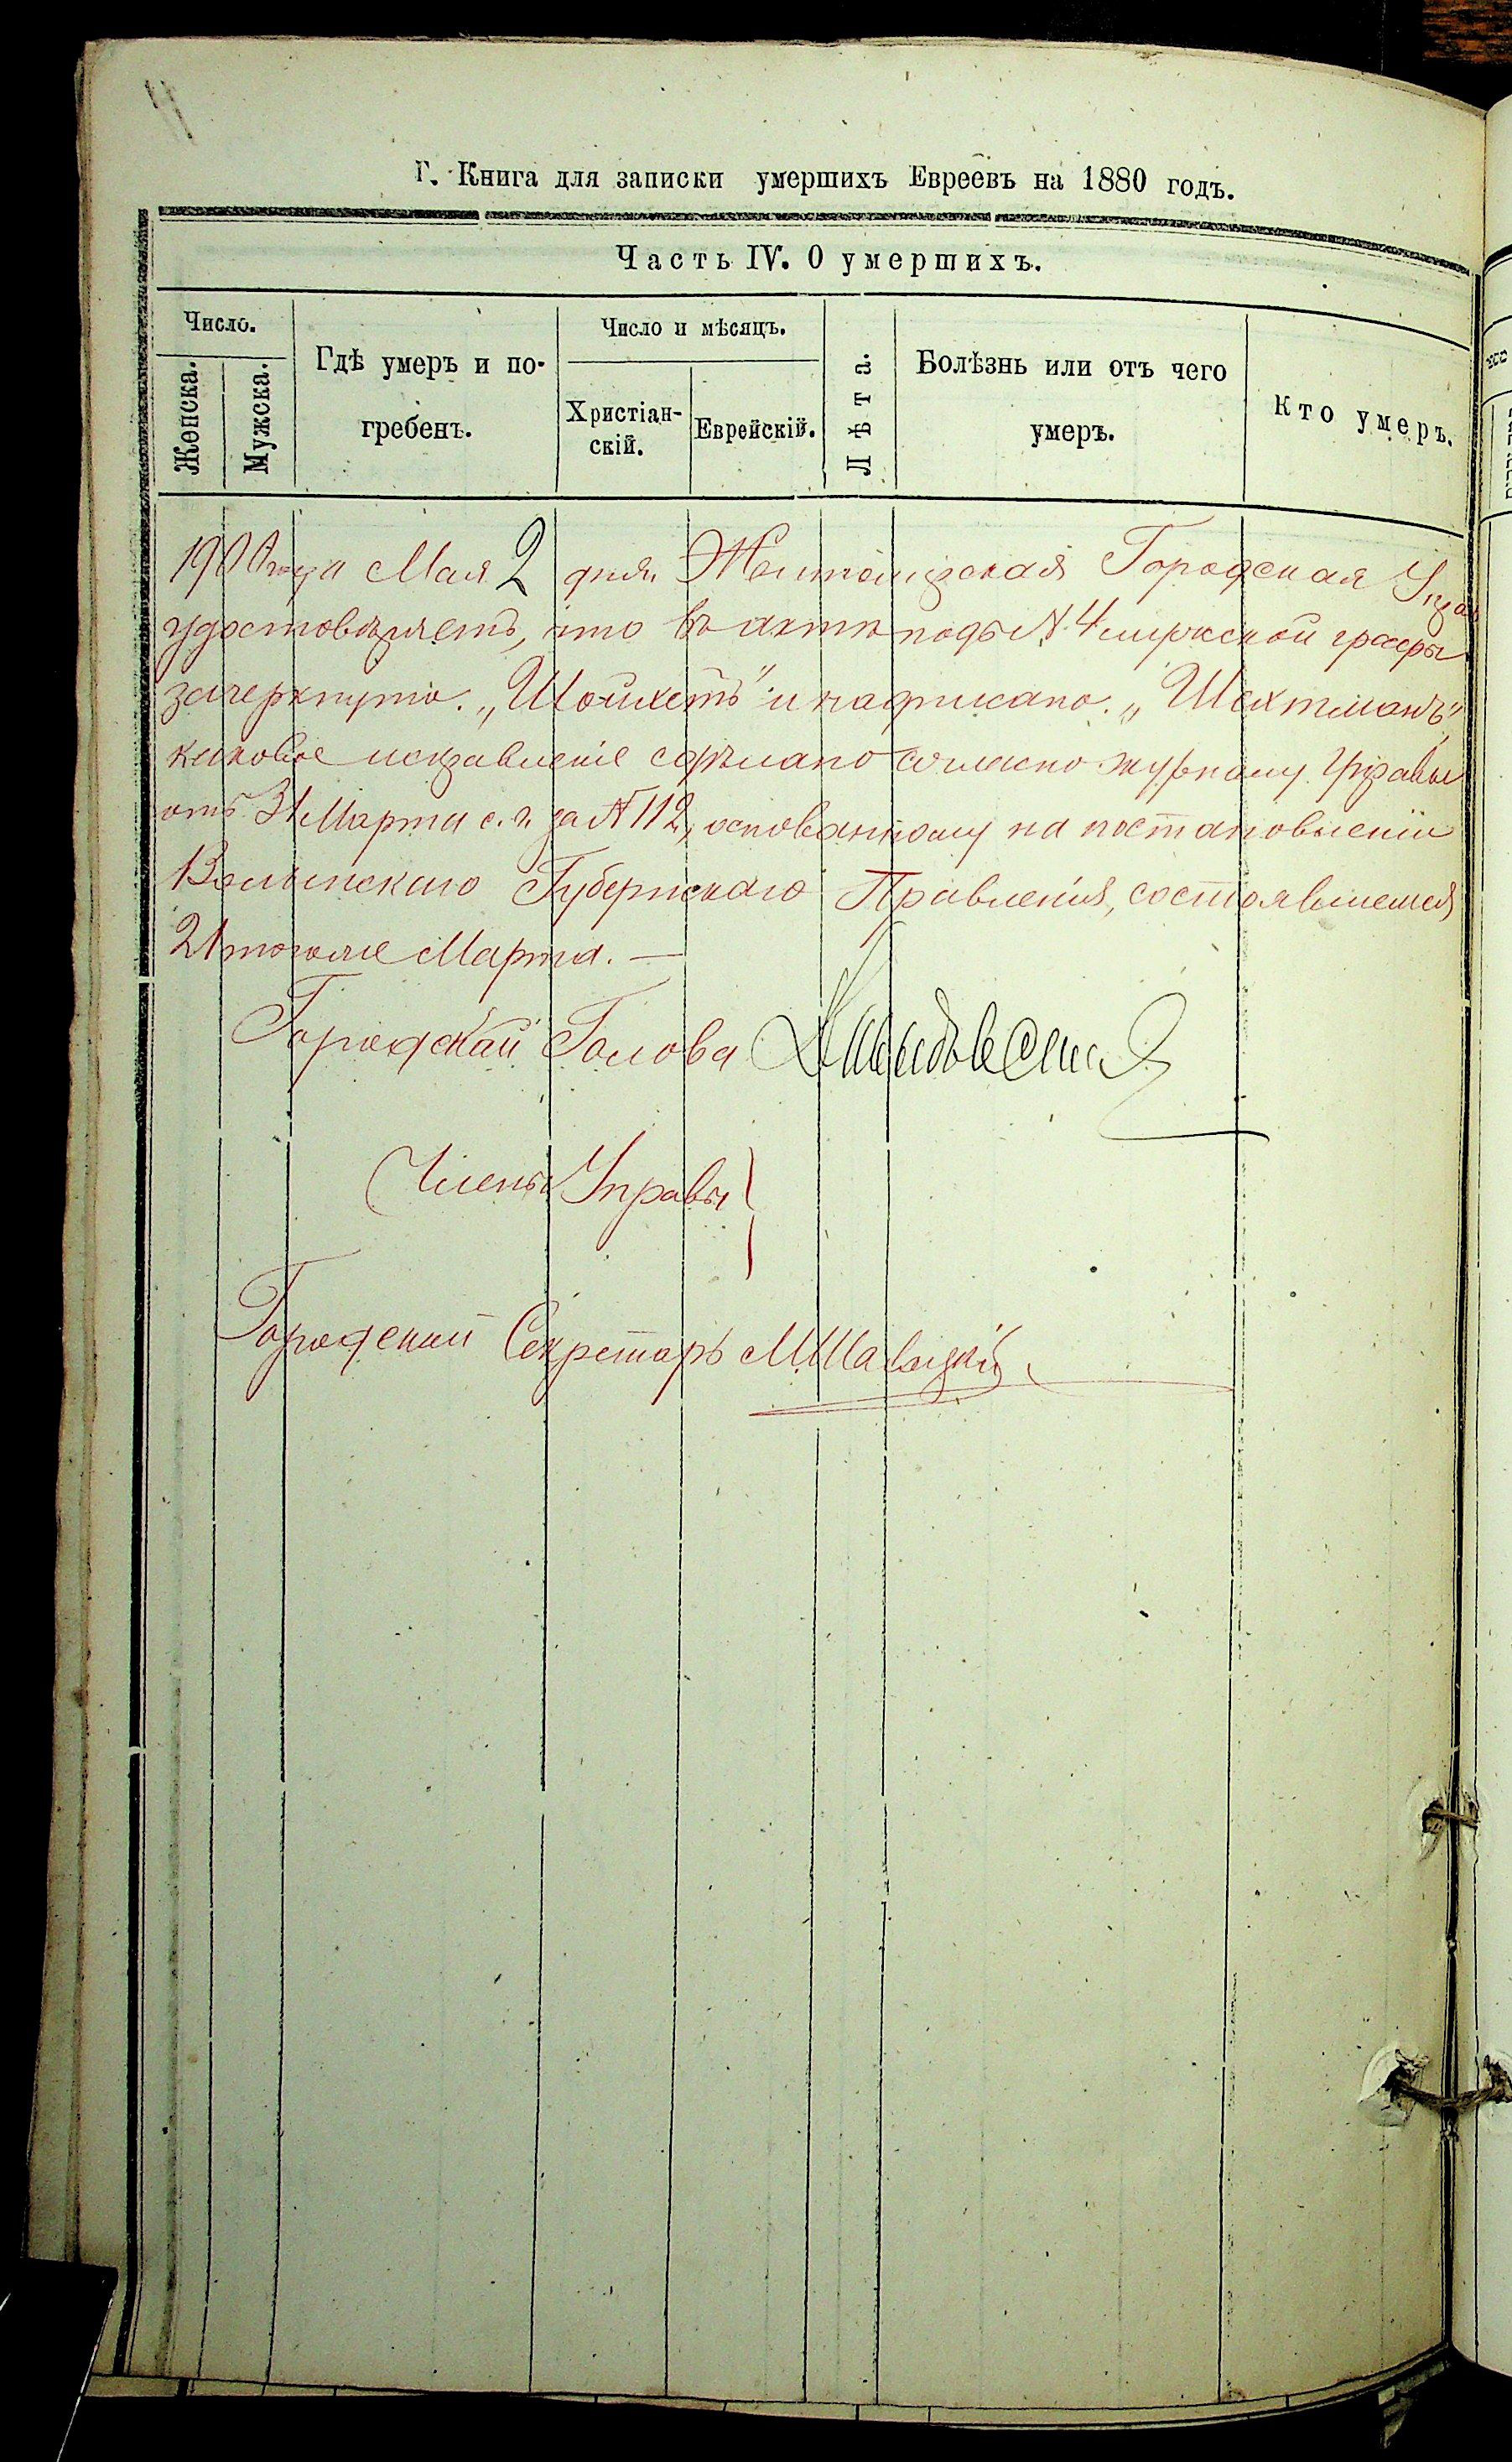 Г. Книга для записки умершихъ Евреевъ на 1880 годъ.
Часть IV. О умершихъ.
Число.
Женска.
Мужска.
Гдѣ умеръ и по-
гребенъ.
Число и мѣсяцъ.
Христіан-
скій.
Еврейскій.
Лѣта.
Болѣзнь или отъ чего
умеръ.
Кто умеръ.
1900 года Мая 2 дня. Житомірская Городская Управа
удостовѣряетъ, что въ актѣ подъ № 4 мужской графы
зачеркнуто „Шойхетъ" и надписано „Шехтманъ"
каковое исправленіе сдѣлано согласно журналу Управы
отъ 31 Марта с. г. за № 112, основанному на постановленіи
Волынскаго Губернскаго Правленія, состоявшемся
21 того же Марта. —
Городской Голова
Члены Управы
Городской Секретарь